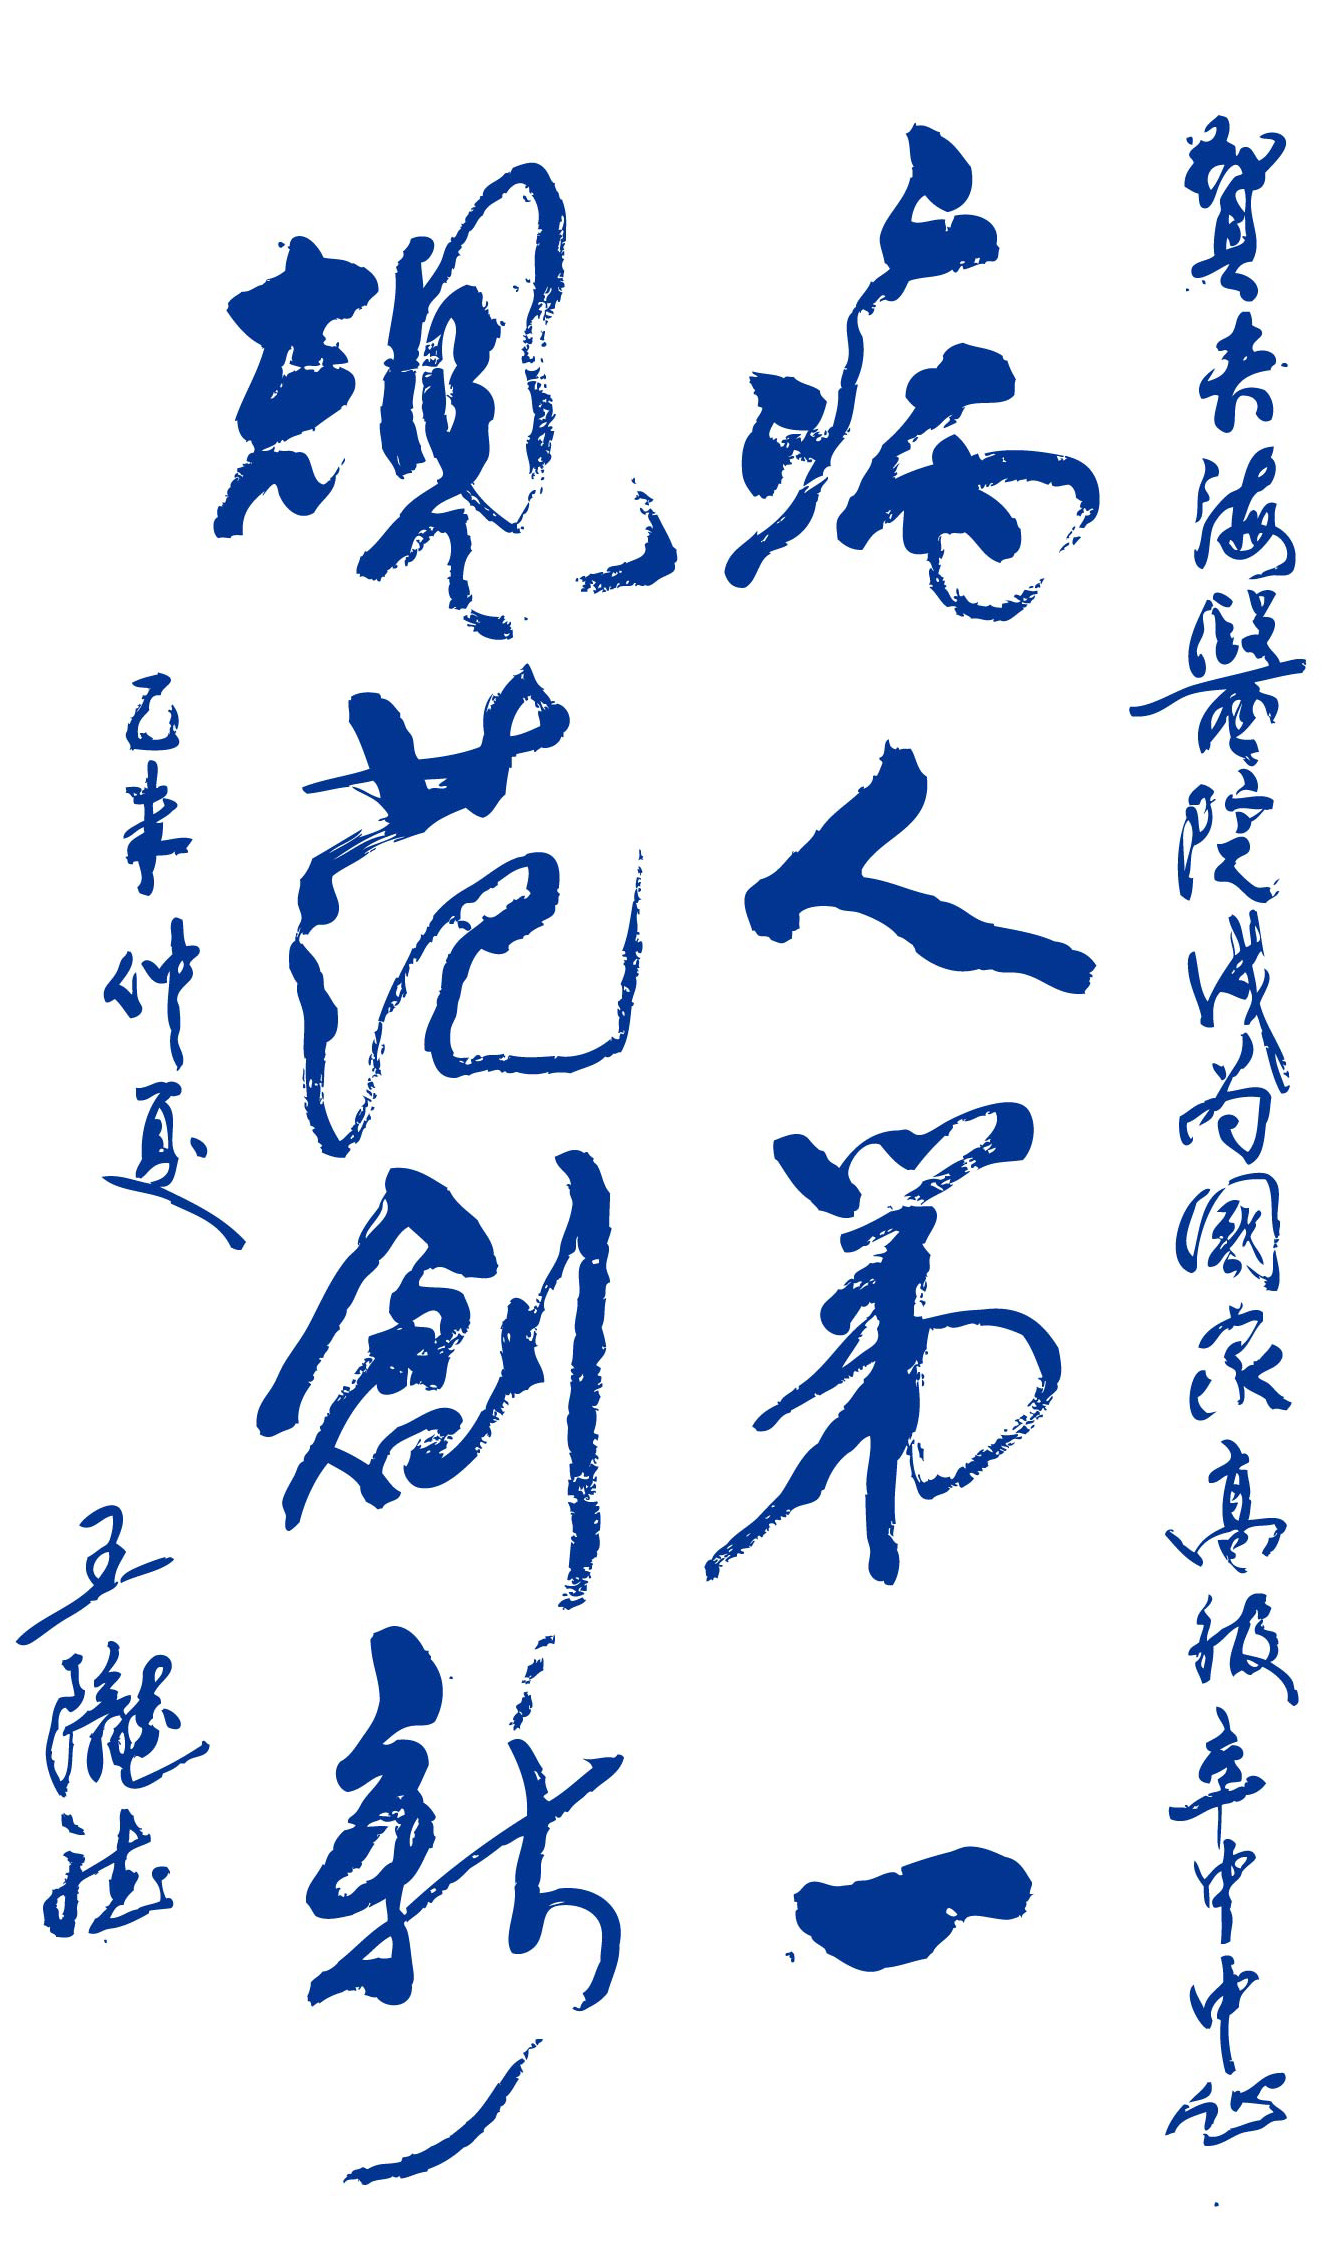 賀海醫院成为國家高級卒中中心
病人第一
規范創新
乙未仲夏
王隴德